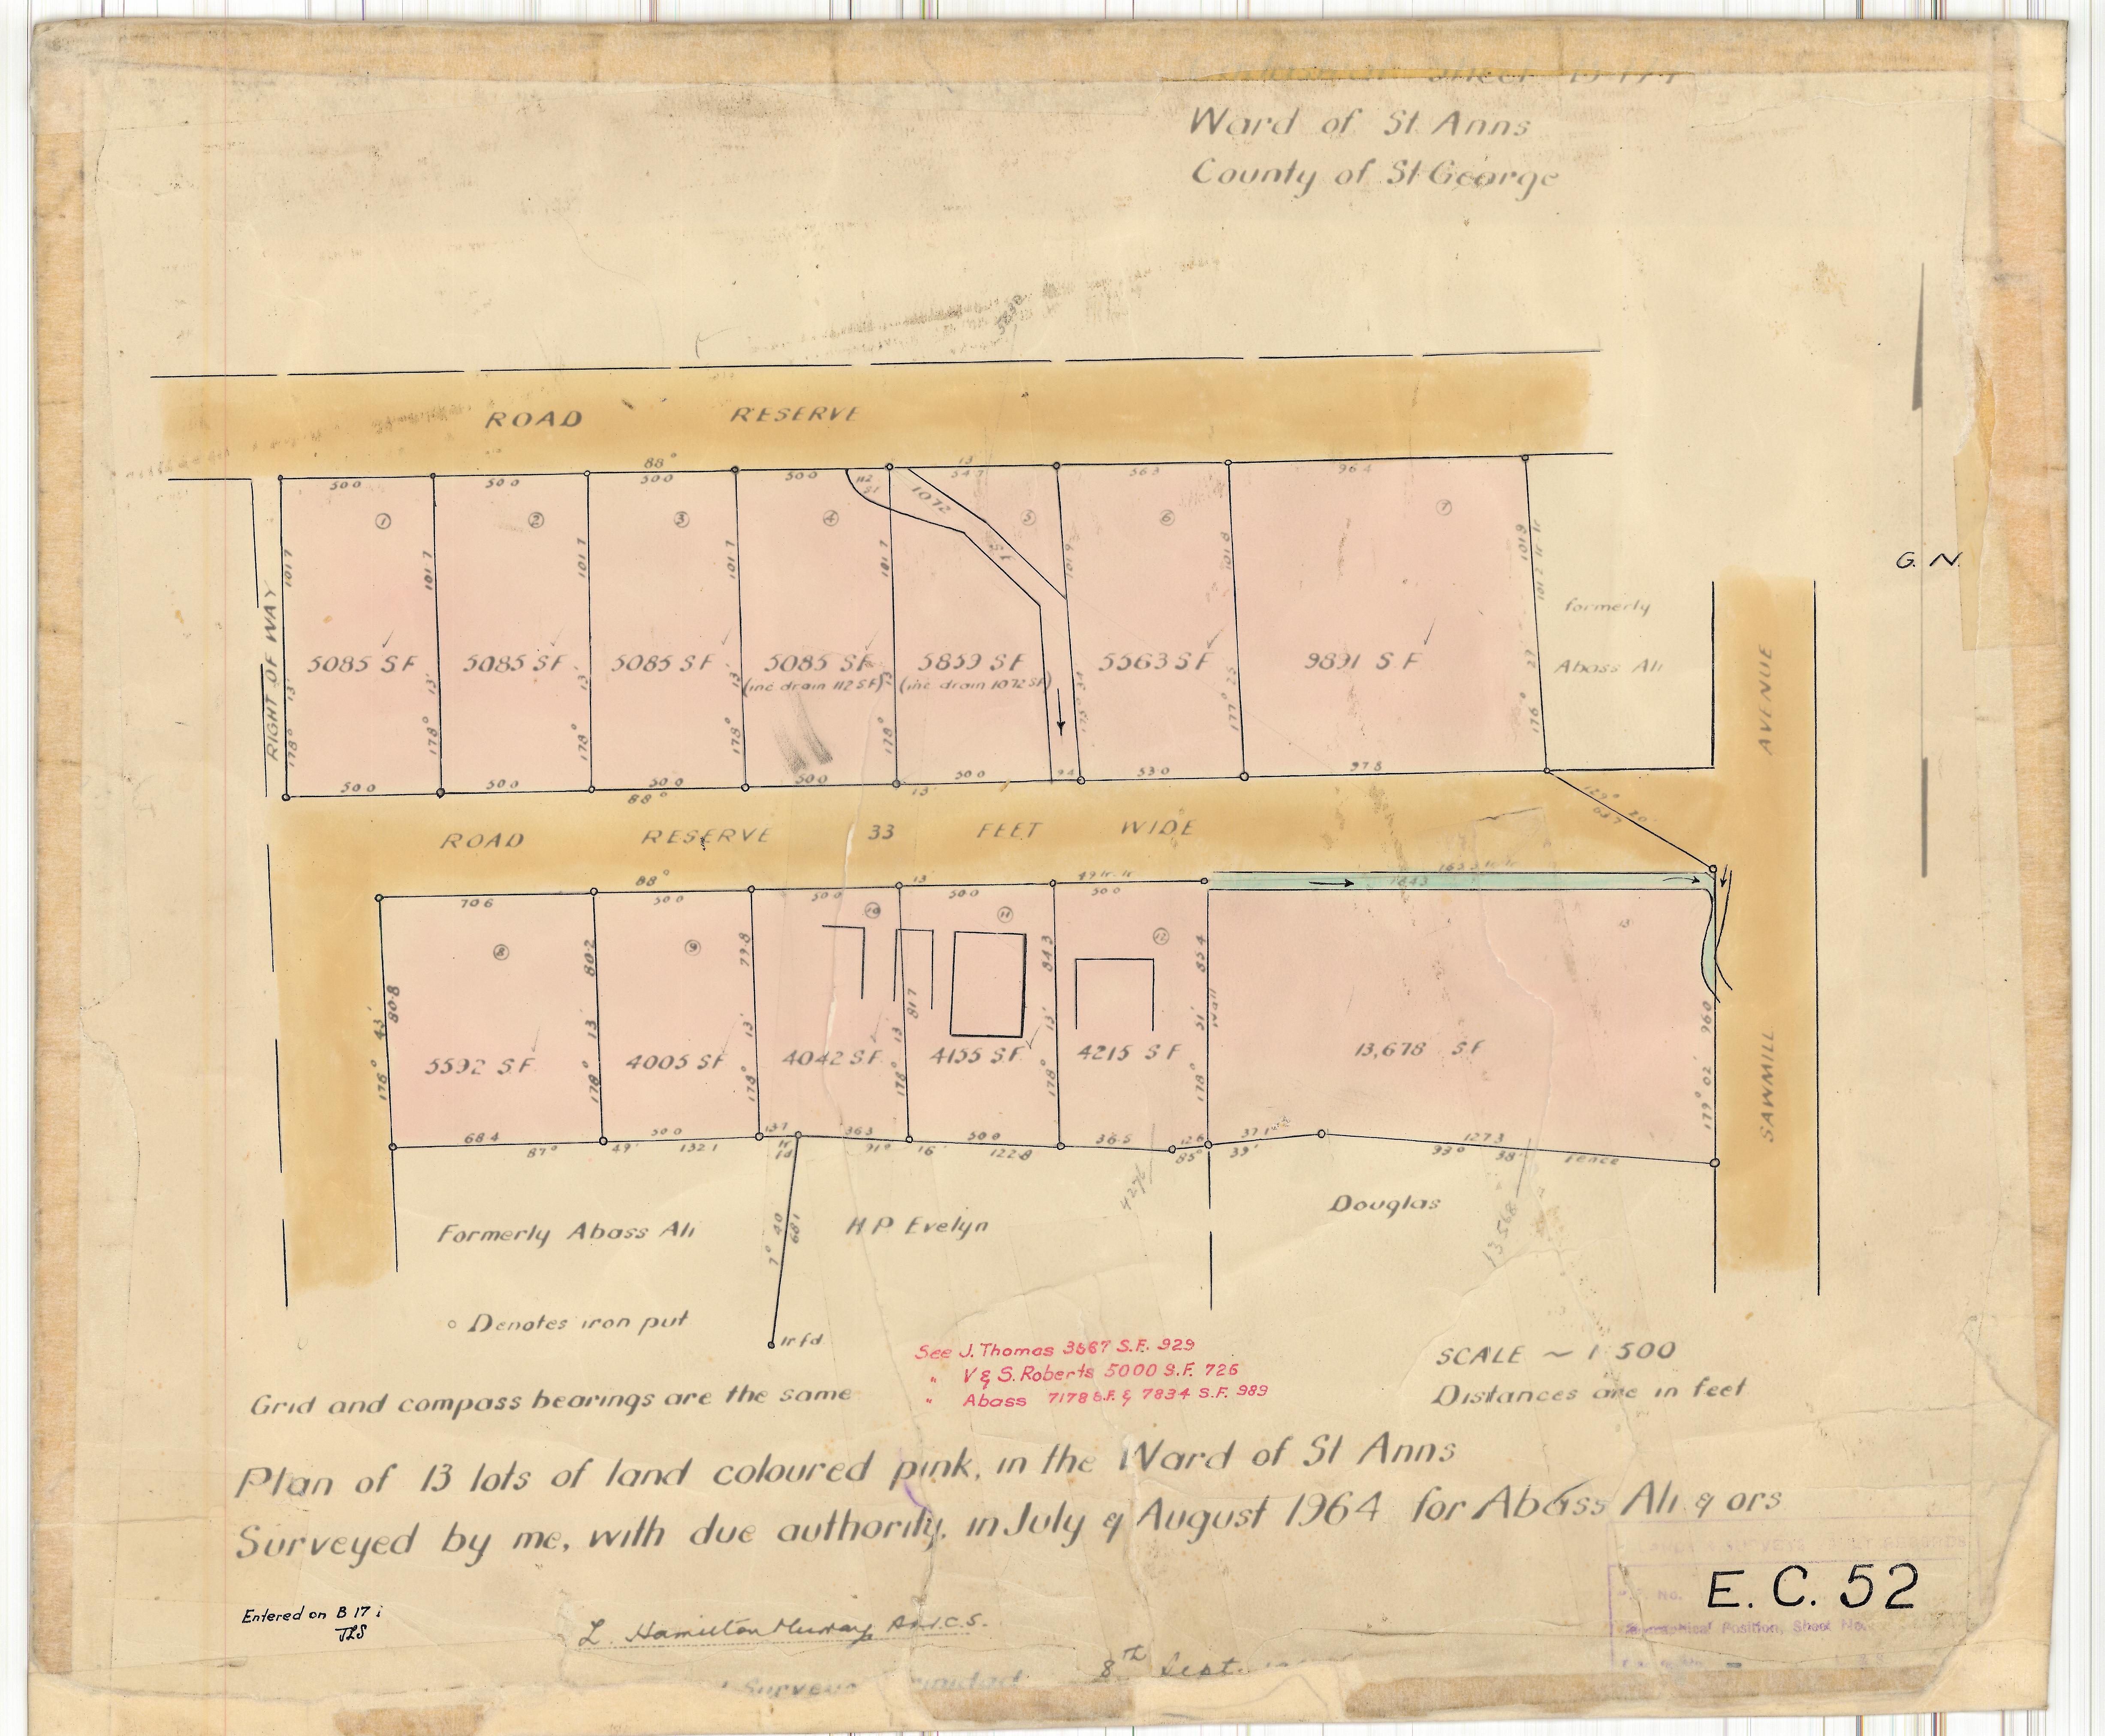 Ward of St. Anns
County of St George
ROAD RESERVE
88°
13'
50 0
50 0
50 0
50 0
54.7
56 3
96 4
112
1072
①
②
③
④
⑤
⑥
⑦
101 7
101 7
101 7
101 7
101 7
101 9
101 8
101 9
G. N.
formerly
Abass Ali
RIGHT OF WAY
5085 S F
5085 S F
5085 S F
5085 S F
(inc drain 112 S F)
5859 S F
(inc drain 1072 S F)
5563 S F
9891 S F
178° 13'
178° 13'
178° 13'
178° 13'
178° 13'
175° 34
177° 25
176° 27
50 0
50 0
50 0
50 0
50 0
9 4
53 0
97 8
88°
13'
AVENUE
ROAD RESERVE 33 FEET WIDE
129° 20'
88°
13'
70 6
50 0
50 0
50 0
50 0
⑧
⑨
⑩
⑪
⑫
13
80.8
80.2
79.8
81.7
84.3
85.4
96 0
176° 43'
178° 13'
178° 13'
178° 13
178° 13'
178° 31'
Wall
179° 02'
5592 S.F.
4005 S F
4042 S F.
4155 S.F.
4215 S F
13,678 S F
SAWMILL
68 4
50 0
13.7
36.3
50 0
36.5
12.6
37.1
127.3
87° 49' 132.1
Ir fd
91° 16' 122.8
85° 39'
93° 38' Fence
Formerly Abass Ali
7° 40
68 1
H P Evelyn
4276
Douglas
13568
o Denotes iron put
Ir fd
See J. Thomas 3667 S.F. 929
" V & S. Roberts 5000 S.F. 726
" Abass 7178 S.F. & 7834 S.F. 989
SCALE ~ 1 500
Distances are in feet
Grid and compass bearings are the same
Plan of 13 lots of land coloured pink, in the Ward of St Anns
Surveyed by me, with due authority, in July & August 1964 for Abass Ali & ors
Entered on B 17 i
JLS
L. Hamilton Murray A.R.I.C.S.
8th Sept.
No.
E. C. 52
Position, Sheet No.